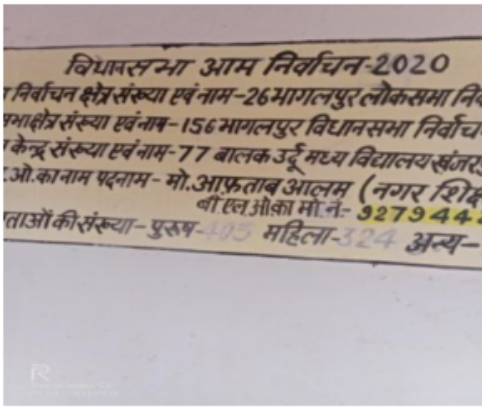 विधानसभा आम निर्वाचन-2020
निर्वाचन क्षेत्र संख्या एवं नाम-26 भागलपुर लोकसभा नि
भाक्षेत्र संख्या एवं नाम-156 भागलपुर विधानसभा निर्वाच
केन्द्र संख्या एवं नाम-77 बालक उर्दू मध्य विद्यालय खंजर
.ओ.का नाम पदनाम- मो.आफ़ताब आलम (नगर शि
बी.एल.ओ.का मो.नं.- 927944
ताओं की संख्या- पुरूष-405 महिला-324 अन्य-